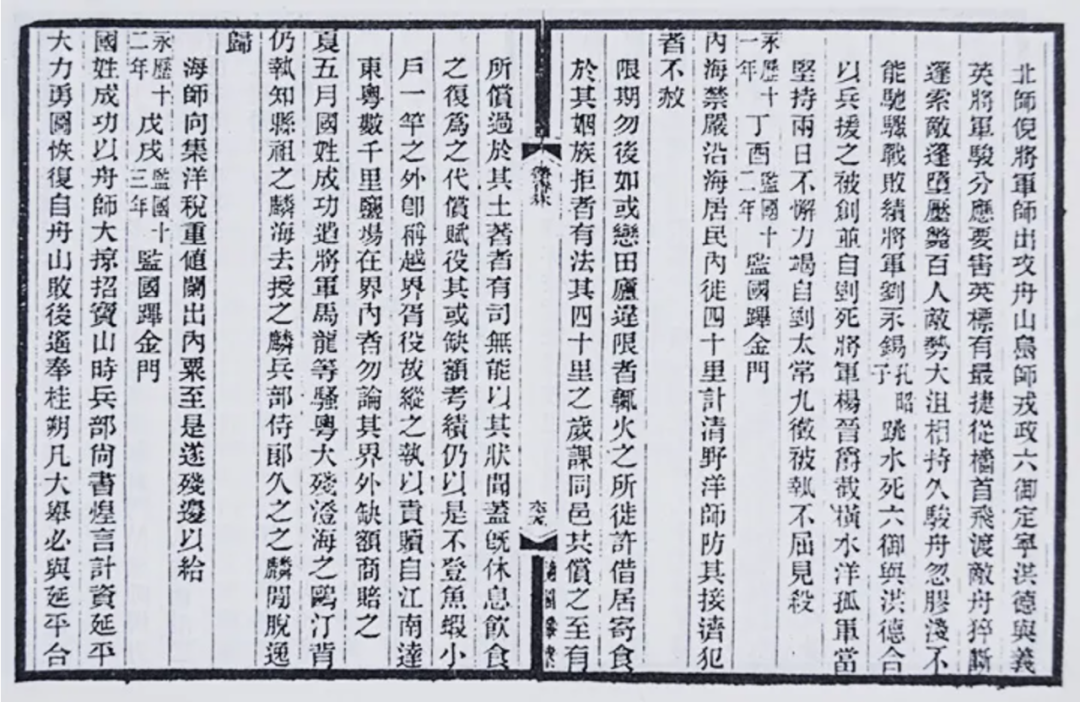 北師倪將軍師出攻舟山島師戎政六御定寧洪德與義
英將軍駿分應要害英標有最捷從檣首飛渡敵舟猝斷
蓬索敵蓬墮壓斃百人敵勢大沮相持久駿舟忽膠淺不
能馳驟戰敗績將軍劉永錫孔昭子跳水死六御與洪德合
以兵援之被創並自剄死將軍楊晉爵截橫水洋孤軍當
堅持兩日不懈力竭自剄太常九徵被執不屈見殺
永歷十一年丁酉監國十二年監國蹕金門
內海禁嚴沿海居民內徙四十里計清野洋師防其接濟犯
者不赦
限期勿後如或戀田廬違限者輒火之所徙許借居寄食
於其姻族拒者有法其四十里之歲課同邑共償之至有
所償過於其土著者有司無能以其狀聞蓋旣休息飮食
之復爲之代償賦役其或缺額考績仍以是不登魚蝦小
戶一竿之外卽稱越界胥役故縱之執以責贖自江南達
東粵數千里鹽場在界內者勿論其界外缺額商賠之
夏五月國姓成功遣將軍馬龍等騷粵大殘澄海之鷗汀背
仍執知縣祖之麟海去授之麟兵部侍郞久之之麟閒脫逸
歸
海師向集洋稅重値闌出內粟至是遂殘邊以給
永歷十二年戊戌監國十三年監國蹕金門
國姓成功以舟師大掠招寶山時兵部尙書煌言計資延平
大力勇圖恢復自舟山敗後適奉桂朔凡大舉必與延平合